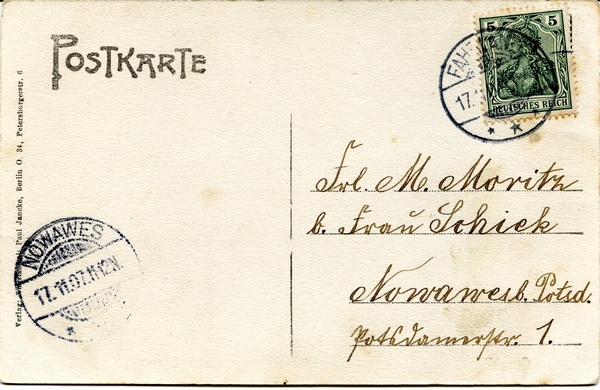 POSTKARTE
5 5
DEUTSCHES REICH
17.
Frl. M. Moritz
b. Frau Schick
Nowawes b. Potsd.
Potsdamerstr. 1.
NOWAWES
17.11.07.11-12N.
Verlag: Paul Jancke, Berlin O. 34, Petersburgerstr. 6